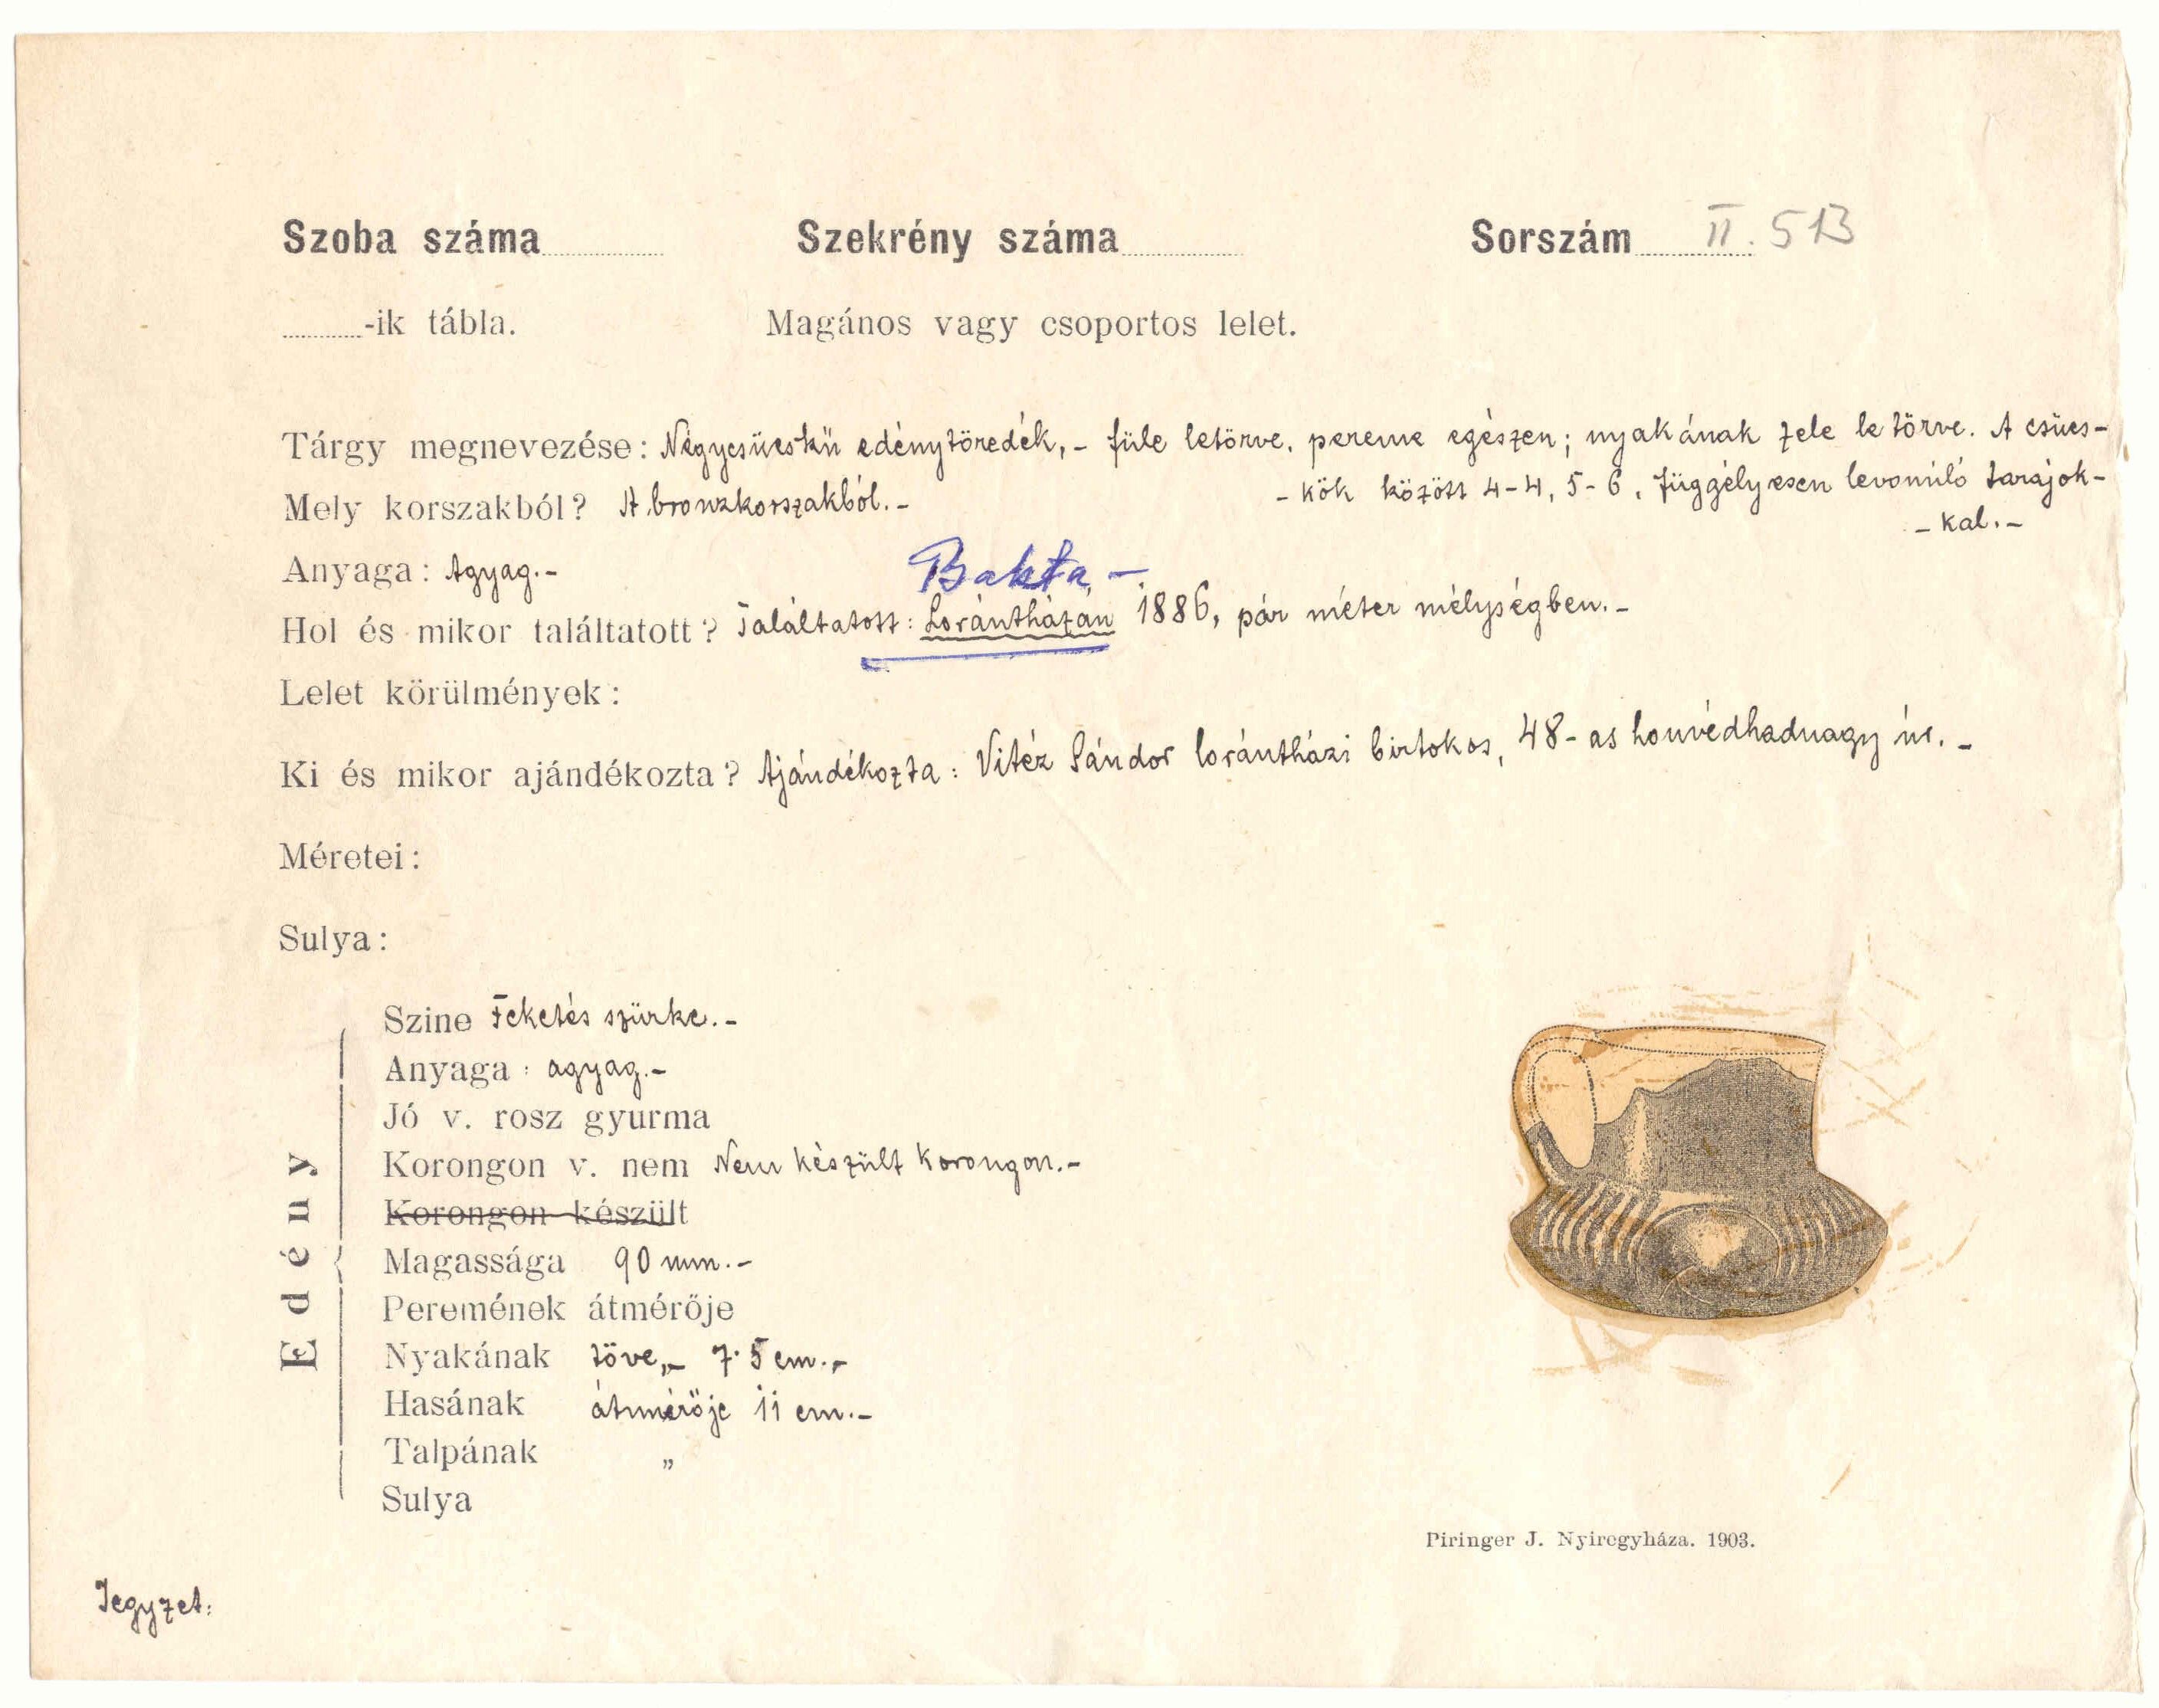 Szoba száma Szekrény száma Sorszám II. 513
-ik tábla. Magános vagy csoportos lelet.
Tárgy megnevezése: Négycsücskü edénytöredék, - füle letörve, pereme egészen; nyakának fele letörve. A csücs-
Mely korszakból? A bronzkorszakból. - - kök között 4-4, 5-6, függélyesen levonúló tarajok-
- kal. -
Anyaga: Agyag. -
Bakta -
Hol és mikor találtatott? Találtatott: Lorántházán 1886, pár méter mélységben. -
Lelet körülmények:
Ki és mikor ajándékozta? Ajándékozta: Vitéz Sándor lorántházi birtokos, 48-as honvédhadnagy úr. -
Méretei:
Sulya:
Edény
Szine Feketés szürke. -
Anyaga: agyag. -
Jó v. rosz gyurma
Korongon v. nem Nem készült korongon. -
Korongon készült
Magassága 90 mm. -
Peremének átmérője
Nyakának töve, - 7·5 cm. -
Hasának átmérője 11 cm. -
Talpának „
Sulya
Piringer J. Nyiregyháza. 1903.
Jegyzet: